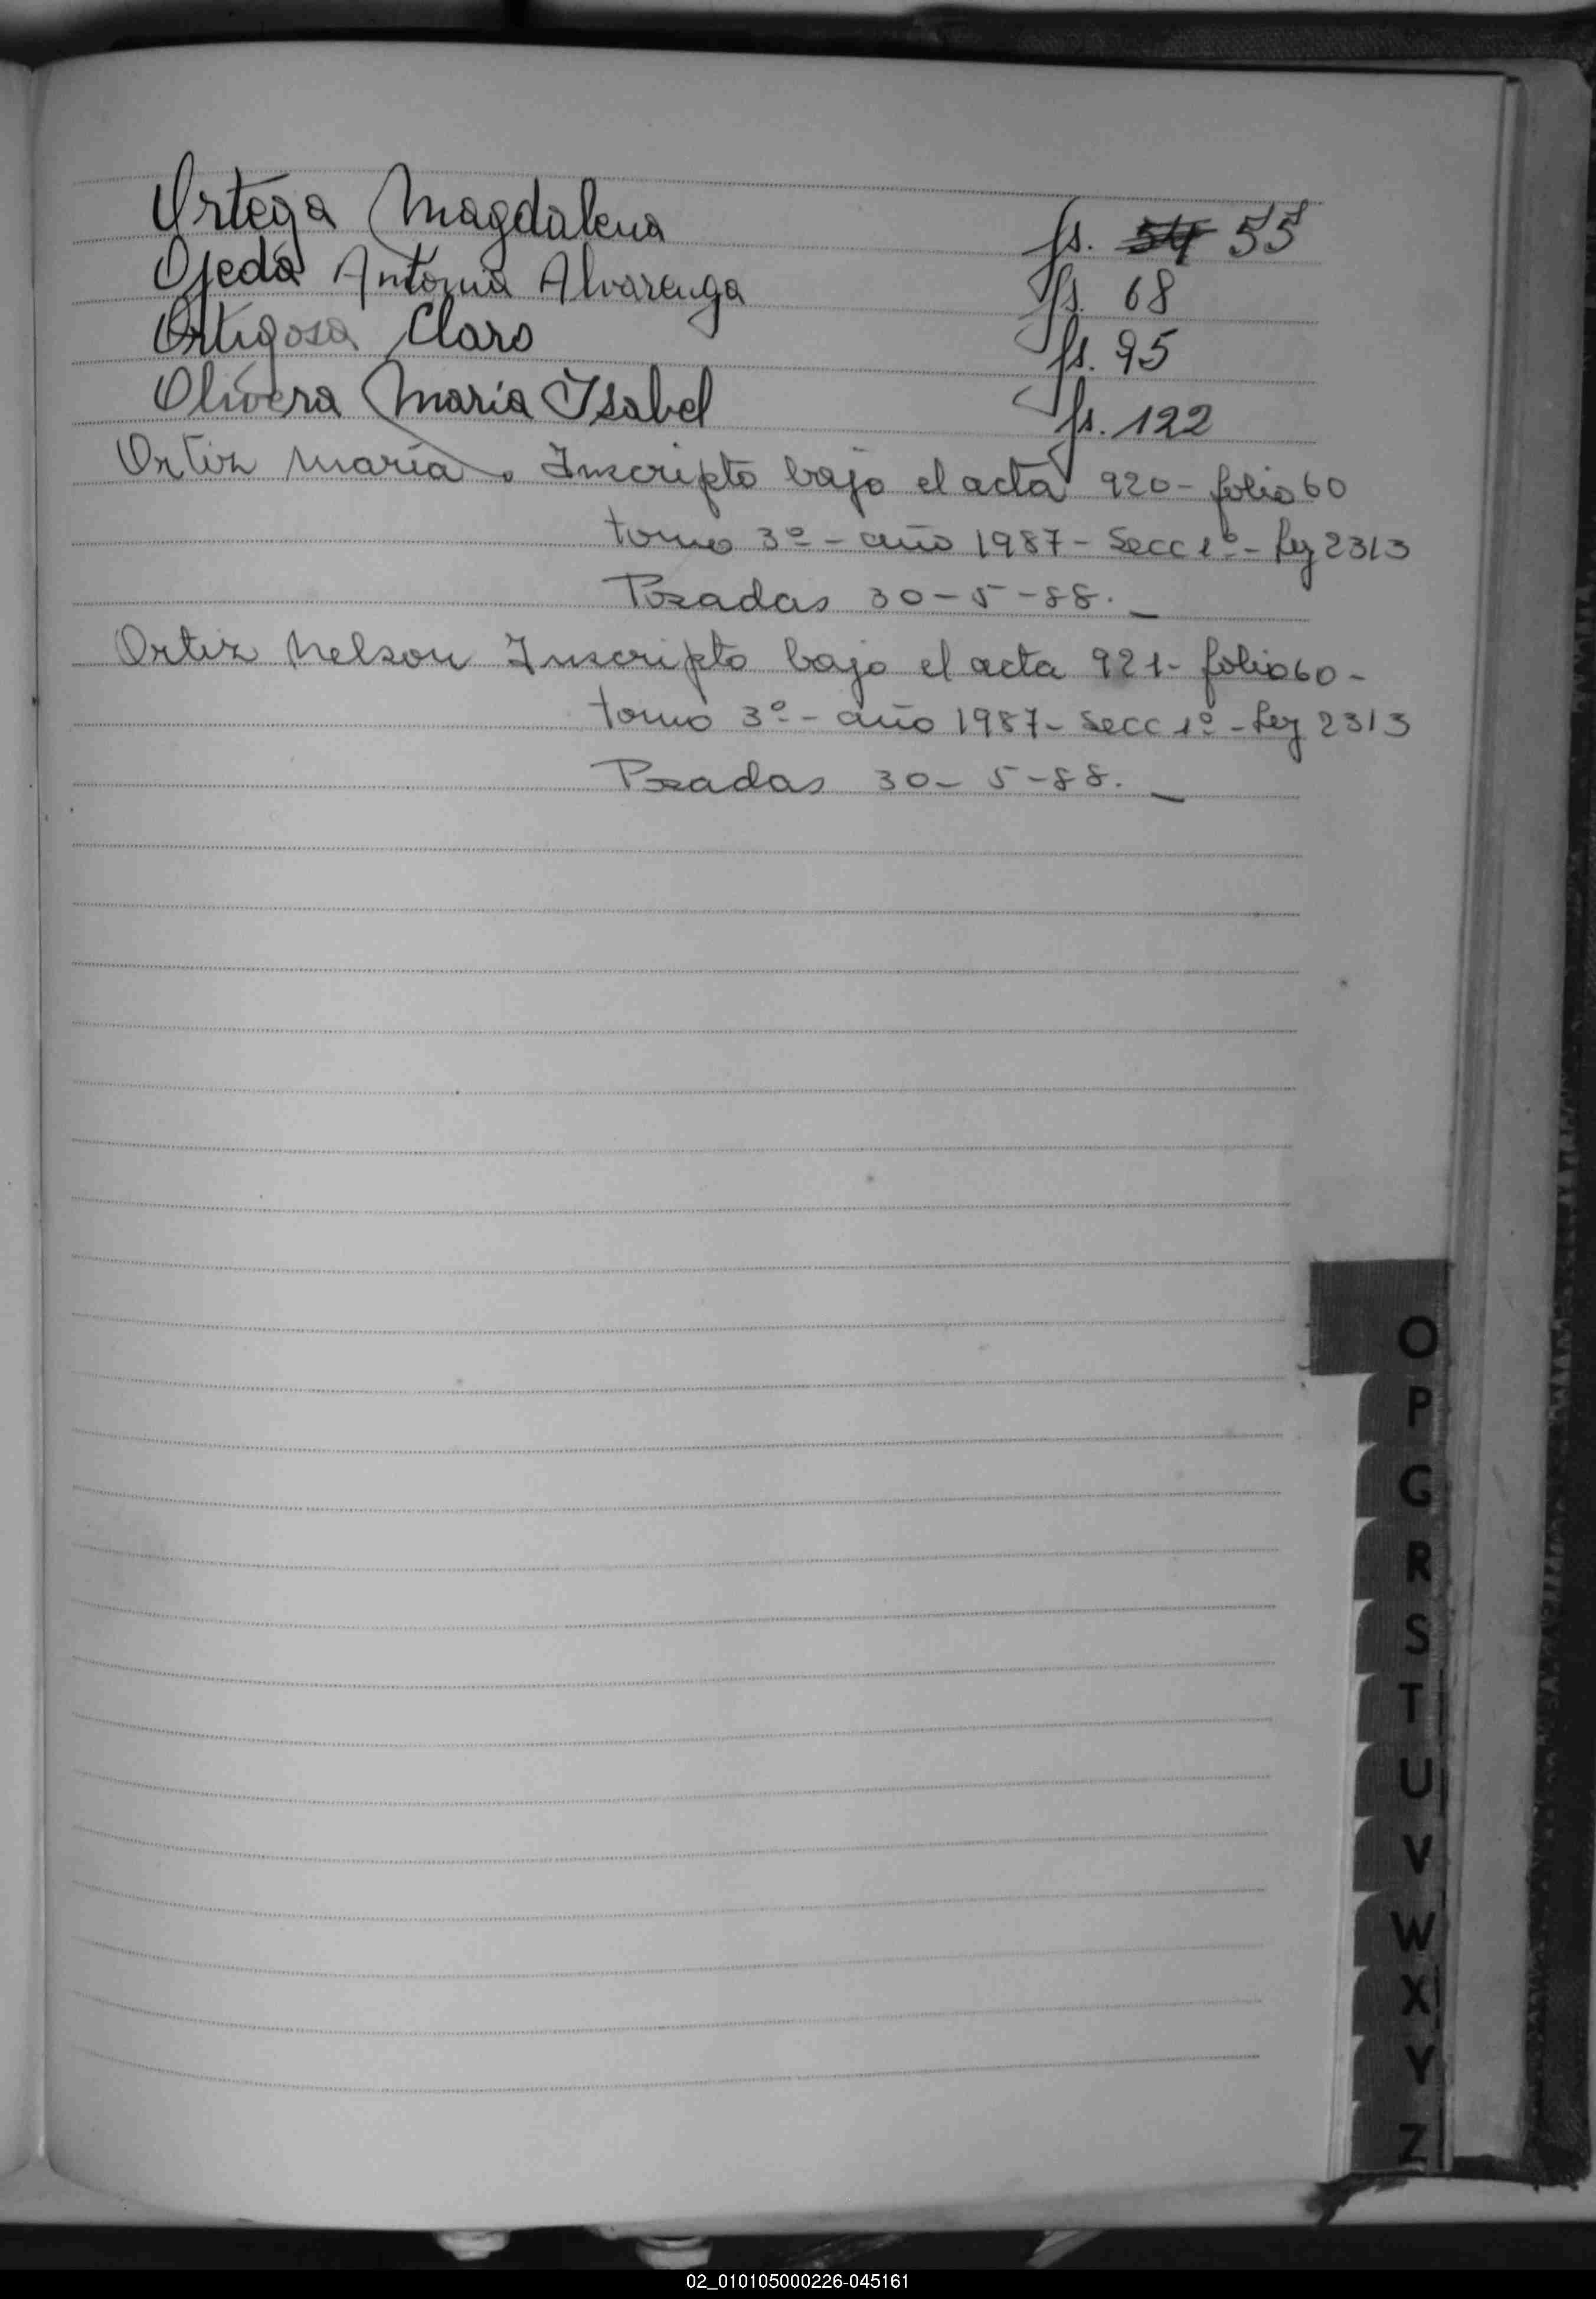 Ortega Magdalena fs. 54 55
Ojeda Antonia Alvarenga fs. 68
Ortigosa Claro fs. 95
Olivera María Isabel fs. 122
Ortiz María. Inscripto bajo el acta 920- folio 60
tomo 3º- año 1987- Secc 1º- Ley 2313
Posadas 30-5-88.
Ortiz Nelson Inscripto bajo el acta 921- folio 60-
tomo 3º- año 1987- Secc 1º- Ley 2313
Posadas 30-5-88.
O
P
G
R
S
T
U
V
W
X
Y
Z
02_010105000226-045161